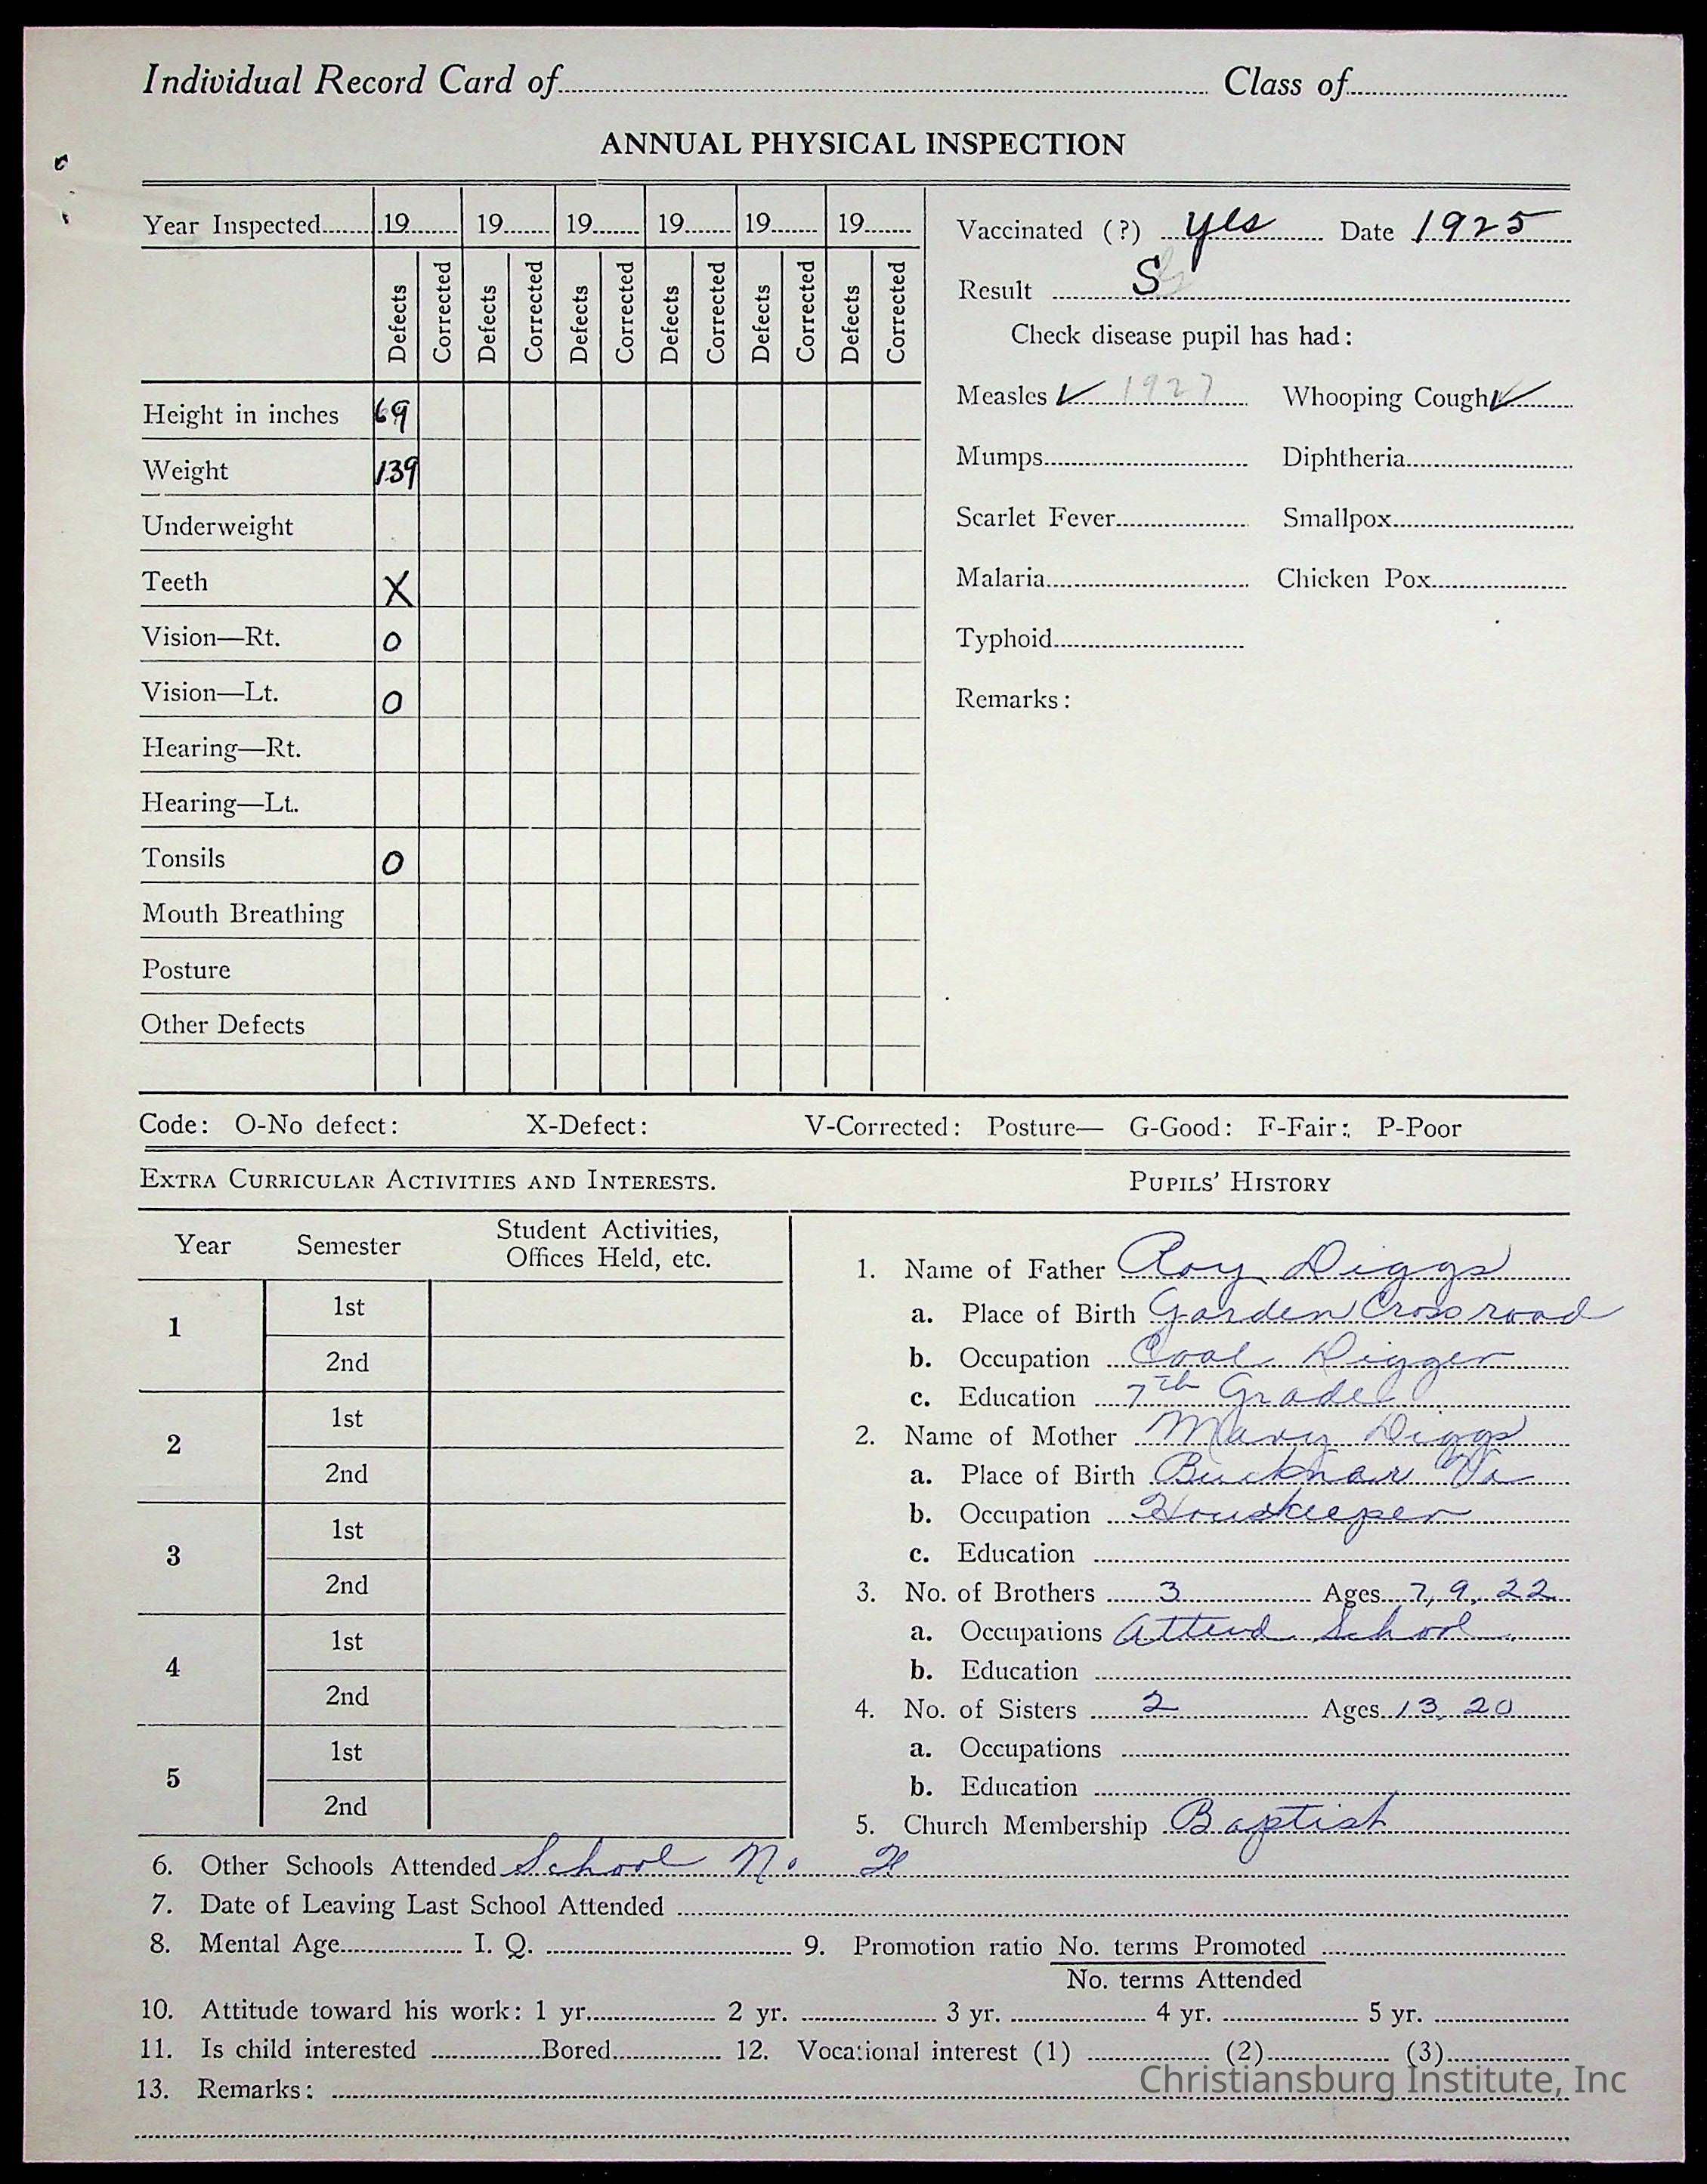 Individual Record Card of Class of
ANNUAL PHYSICAL INSPECTION
Year Inspected 19 19 19 19 19 19
Defects Corrected Defects Corrected Defects Corrected Defects Corrected Defects Corrected Defects Corrected
Height in inches 69
Weight 139
Underweight
Teeth X
Vision—Rt. O
Vision—Lt. O
Hearing—Rt.
Hearing—Lt.
Tonsils O
Mouth Breathing
Posture
Other Defects
Vaccinated (?) yes Date 1925
Result S
Check disease pupil has had:
Measles ✓ 1927 Whooping Cough ✓
Mumps Diphtheria
Scarlet Fever Smallpox
Malaria Chicken Pox
Typhoid
Remarks:
Code: O-No defect: X-Defect: V-Corrected: Posture— G-Good: F-Fair: P-Poor
EXTRA CURRICULAR ACTIVITIES AND INTERESTS.
Year Semester Student Activities, Offices Held, etc.
1 1st
2nd
2 1st
2nd
3 1st
2nd
4 1st
2nd
5 1st
2nd
PUPILS' HISTORY
1. Name of Father Roy Diggs
a. Place of Birth Garden Crossroad
b. Occupation Coal Digger
c. Education 7th Grade
2. Name of Mother Mary Diggs
a. Place of Birth Bucknar Va
b. Occupation Houskeeper
c. Education
3. No. of Brothers 3 Ages 7, 9, 22
a. Occupations Attend School
b. Education
4. No. of Sisters 2 Ages 13, 20
a. Occupations
b. Education
5. Church Membership Baptist
6. Other Schools Attended School No.
7. Date of Leaving Last School Attended
8. Mental Age I. Q. 9. Promotion ratio No. terms Promoted
No. terms Attended
10. Attitude toward his work: 1 yr. 2 yr. 3 yr. 4 yr. 5 yr.
11. Is child interested Bored 12. Vocational interest (1) (2) (3)
13. Remarks:
Christiansburg Institute, Inc